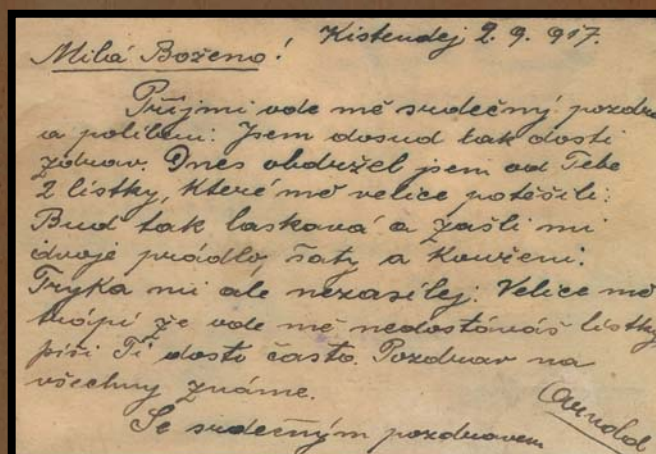 Kistendej 2. 9. 917.
Milá Boženo!
Přijmi ode mě srdečný pozdra
a políbení: Jsem dosud tak dosti
zdráv. Dnes obdržel jsem od Tebe
2 lístky, které mě velice potěšili:
Bud tak laskavá a zašli mi
dvoje prádlo, šaty a kouření:
Tryka mi ale nezasílej: Velice mě
trápí že ode mě nedostáváš lístky,
píši Ti dosti často. Pozdrav na
všechny známe.
Se srdečným pozdravem
Arnold